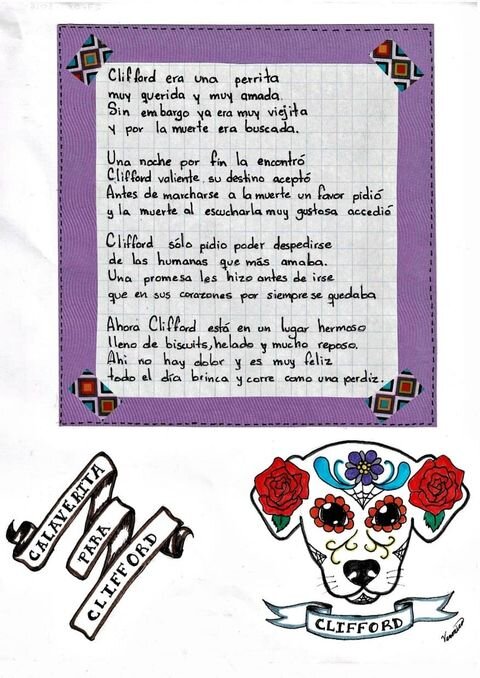 Clifford era una perrita
muy querida y muy amada.
Sin embargo ya era muy viejita
y por la muerte era buscada.
Una noche por fin la encontró
Clifford valiente su destino aceptó
Antes de marcharse a la muerte un favor pidió
y la muerte al escucharla muy gustosa accedió
Clifford sólo pidio poder despedirse
de las humanas que más amaba.
Una promesa les hizo antes de irse
que en sus corazones por siempre se quedaba
Ahora Clifford está en un lugar hermoso
lleno de biscuits, helado y mucho reposo.
Ahi no hay dolor y es muy feliz
todo el día brinca y corre como una perdiz.
CALAVERITA
PARA
CLIFFORD
CLIFFORD